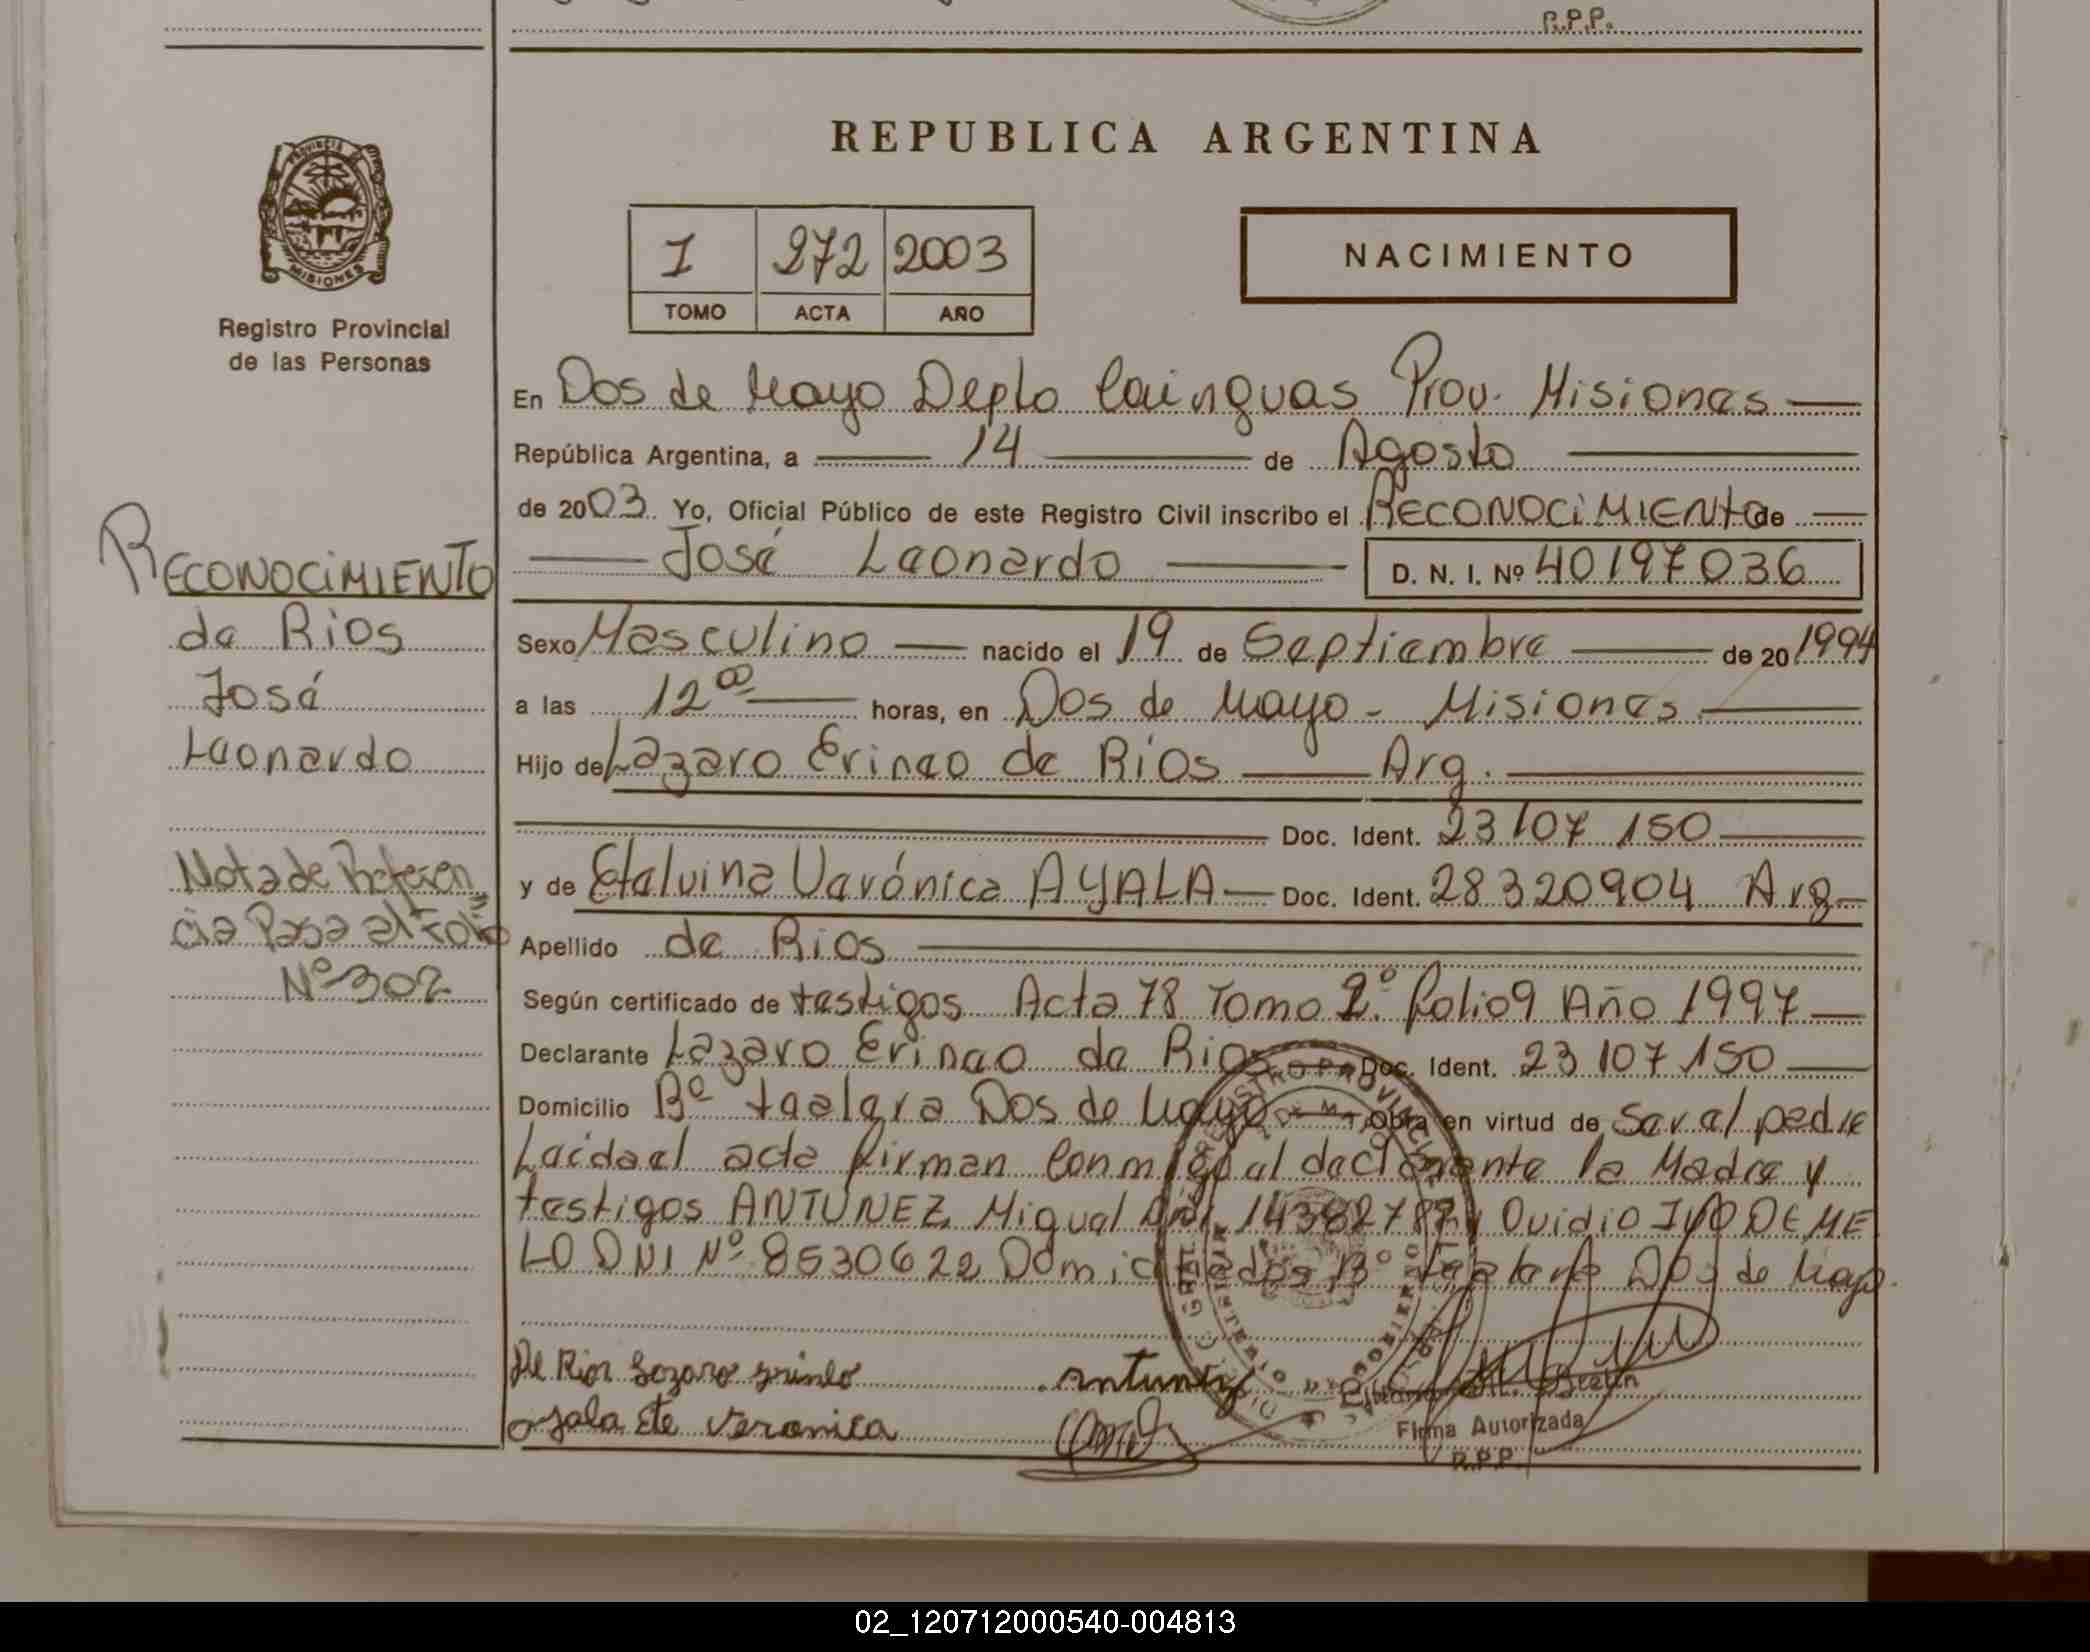 R.P.P.
REPUBLICA ARGENTINA
PROVINCIA DE
MISIONES
Registro Provincial
de las Personas
I 272 2003
TOMO ACTA AÑO
NACIMIENTO
En Dos de Mayo Depto Cainguas Prov. Misiones
República Argentina, a 14 de Agosto
de 2003 Yo, Oficial Público de este Registro Civil inscribo el RECONOCIMIENTO de
José Leonardo D. N. I. Nº 40197036
RECONOCIMIENTO
de Rios
José
Leonardo
Nota de Referen
cia Pasa al Folio
Nº 302
Sexo Masculino nacido el 19 de Septiembre de 20 1994
a las 12 00 horas, en Dos de Mayo - Misiones
Hijo de Lazaro Erineo de Rios Arg.
Doc. Ident. 23 107 150
y de Etelvina Verónica AYALA Doc. Ident. 28320904 Arg
Apellido de Rios
Según certificado de testigos Acta 78 Tomo 2º Folio 9 Año 1997
Declarante Lazaro Erineo de Rios Doc. Ident. 23 107 150
Domicilio Bº tealera Dos de Mayo Obra en virtud de Ser el padre
Leida el acta firman Conmigo el declarante la Madre y
testigos ANTUNEZ Miguel DNI. 14382787 y Ovidio IVO DE ME
LO DNI Nº 8530622 Domiciliados Bº tealera Dos de Mayo.
De Rios Lozaro erineo antunez
ayala ete veronica
Firma Autorizada
R.P.P.
02_120712000540-004813